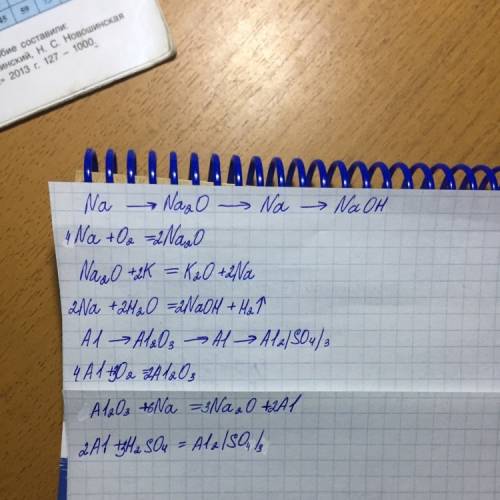 45 59
бие составили:
инский, Н. С. Новошинская
» 2013 г. 127 – 1000
Na → Na₂O → Na → NaOH
4Na + O₂ = 2Na₂O
Na₂O + 2K = K₂O + 2Na
2Na + 2H₂O = 2NaOH + H₂↑
Al → Al₂O₃ → Al → Al₂(SO₄)₃
4Al + 3O₂ = 2Al₂O₃
Al₂O₃ + 6Na = 3Na₂O + 2Al
2Al + 3H₂SO₄ = Al₂(SO₄)₃